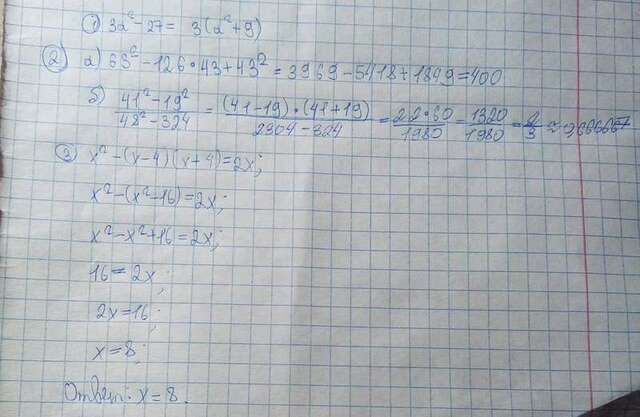 ① 3a² - 27 = 3(a² + 9)
② а) 63² - 126 · 43 + 43² = 3969 - 5418 + 1849 = 400
б) (41² - 19²)/(48² - 324) = ((41-19) · (41+19))/(2304 - 324) = (22 · 60)/1980 = 1320/1980 = 2/3 ≈ 0,666667
3 x² - (x-4)(x+4) = 2x;
x² - (x² - 16) = 2x;
x² - x² + 16 = 2x;
16 = 2x;
2x = 16;
x = 8;
Ответ: x = 8.